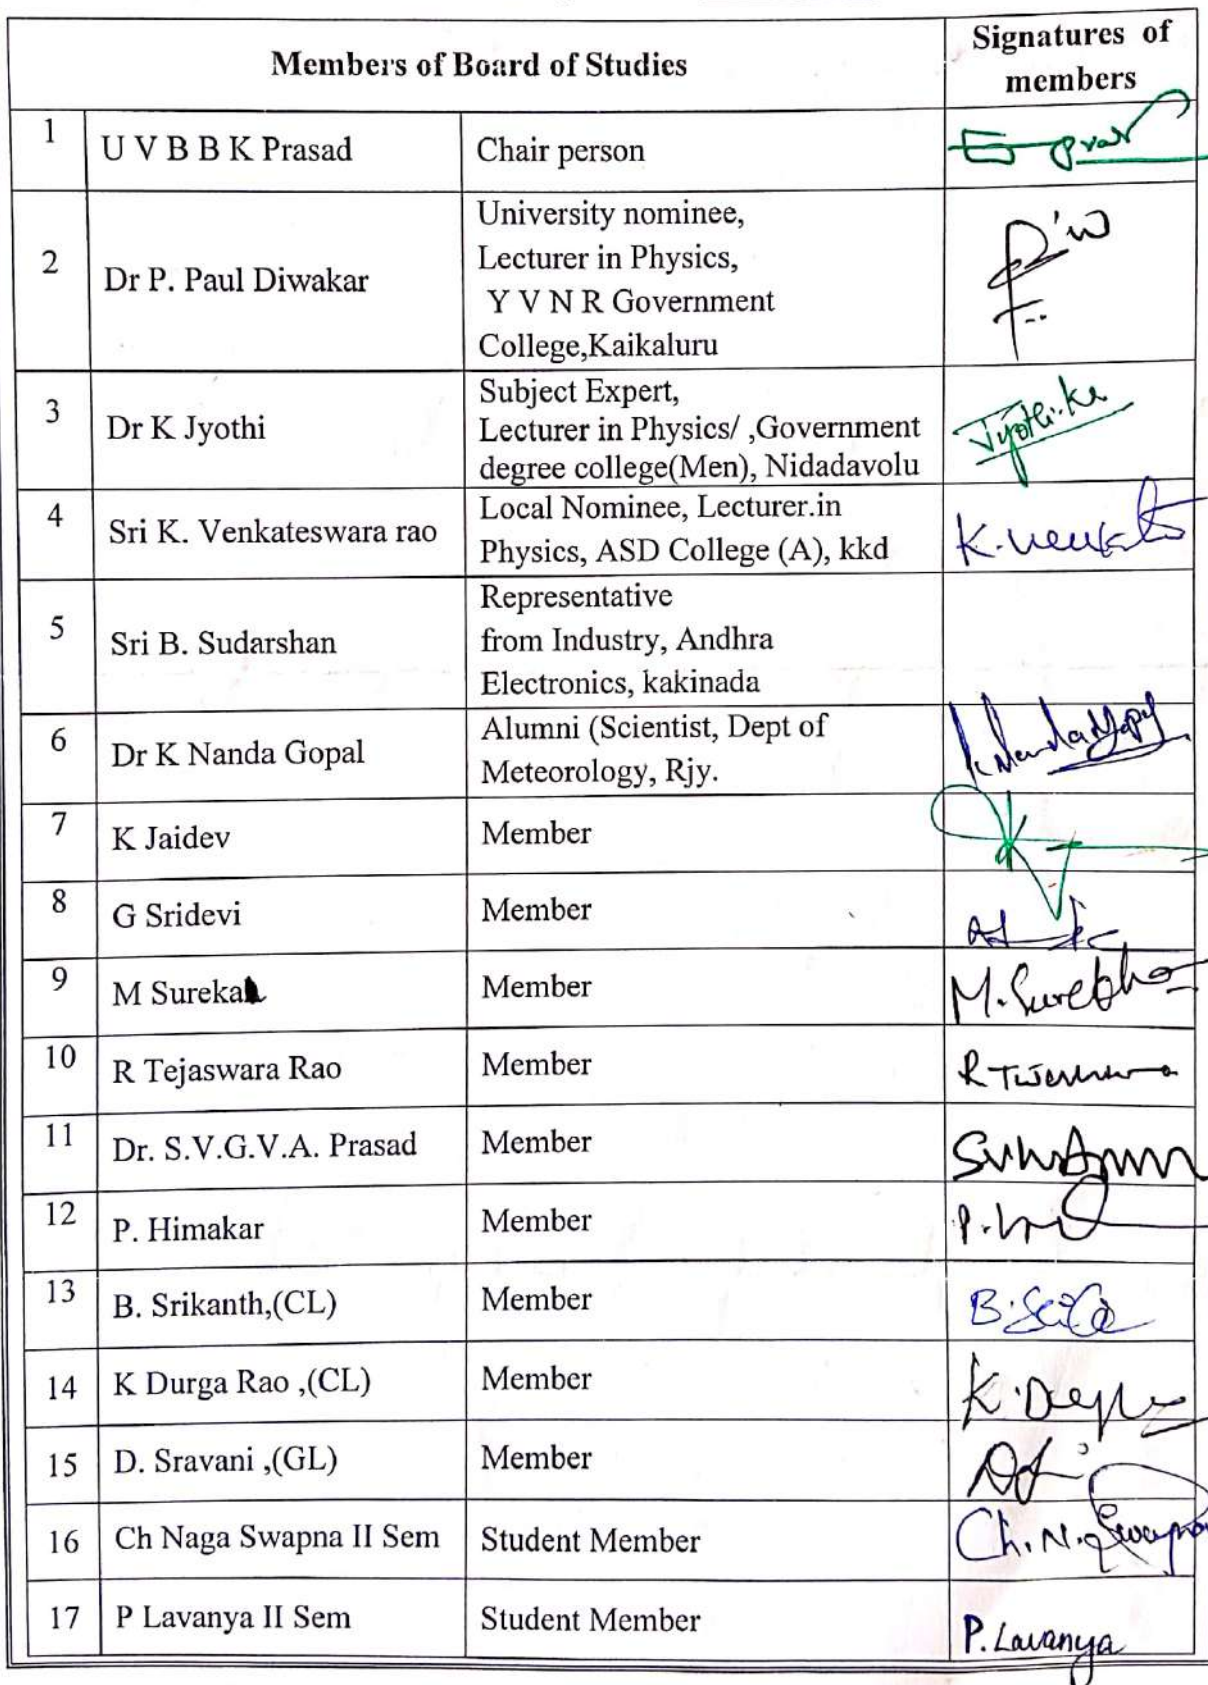 Members of Board of Studies
Signatures of
members
1
U V B B K Prasad
Chair person
2
Dr P. Paul Diwakar
University nominee,
Lecturer in Physics,
Y V N R Government
College,Kaikaluru
3
Dr K Jyothi
Subject Expert,
Lecturer in Physics/ ,Government
degree college(Men), Nidadavolu
Jyothi.K
4
Sri K. Venkateswara rao
Local Nominee, Lecturer.in
Physics, ASD College (A), kkd
5
Sri B. Sudarshan
Representative
from Industry, Andhra
Electronics, kakinada
6
Dr K Nanda Gopal
Alumni (Scientist, Dept of
Meteorology, Rjy.
7
K Jaidev
Member
8
G Sridevi
Member
9
M Sureka
Member
M. Surekha
10
R Tejaswara Rao
Member
11
Dr. S.V.G.V.A. Prasad
Member
12
P. Himakar
Member
13
B. Srikanth,(CL)
Member
14
K Durga Rao ,(CL)
Member
15
D. Sravani ,(GL)
Member
16
Ch Naga Swapna II Sem
Student Member
Ch. N. Swapna
17
P Lavanya II Sem
Student Member
P. Lavanya